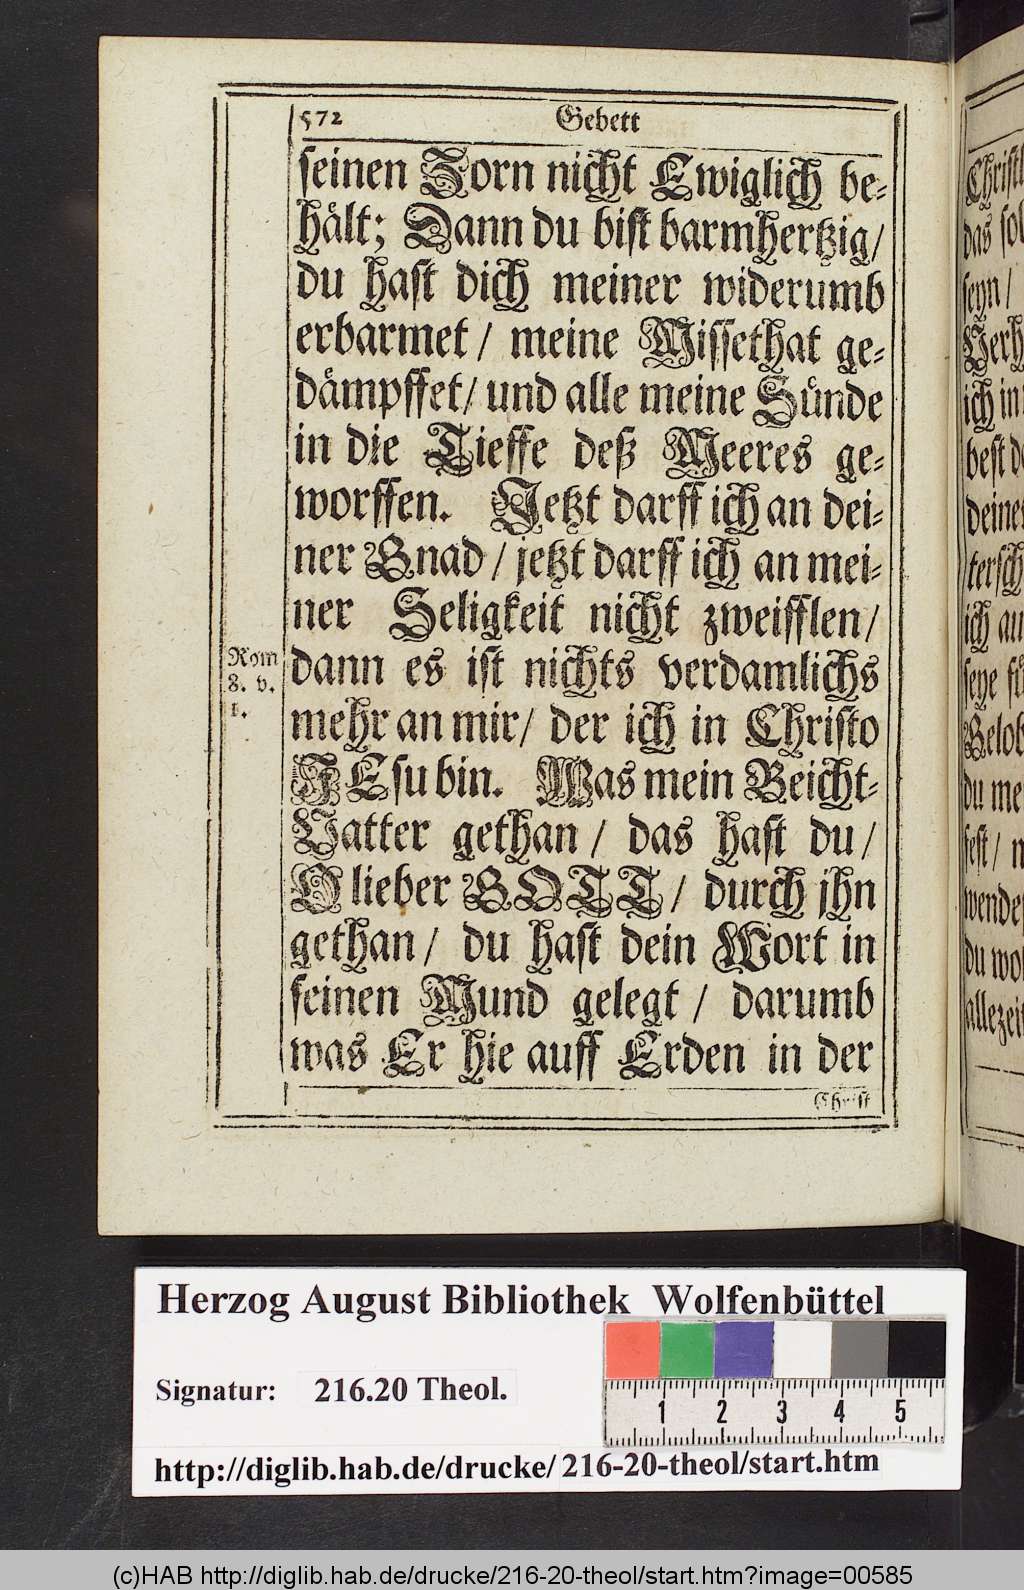 572 Gebett
seinen Zorn nicht Ewiglich be-
hält; Dann du bist barmhertzig/
du hast dich meiner widerumb
erbarmet / meine Missethat ge-
dämpffet/ und alle meine Sünde
in die Tieffe deß Meeres ge-
worffen. Jetzt darff ich an dei-
ner Gnad / jetzt darff ich an mei-
ner Seligkeit nicht zweifflen/
Rom
8. v.
1.
dann es ist nichts verdamlichs
mehr an mir/ der ich in Christo
JEsu bin. Was mein Beicht-
Vatter gethan / das hast du /
O lieber GOTT / durch jhn
gethan / du hast dein Wort in
seinen Mund gelegt / darumb
was Er hie auff Erden in der
Christ
das
seyn /
ich in
best
deiner
ich
seye
du
fest /
du
Herzog August Bibliothek Wolfenbüttel
Signatur: 216.20 Theol.
1 2 3 4 5
http://diglib.hab.de/drucke/216-20-theol/start.htm
(c)HAB http://diglib.hab.de/drucke/216-20-theol/start.htm?image=00585